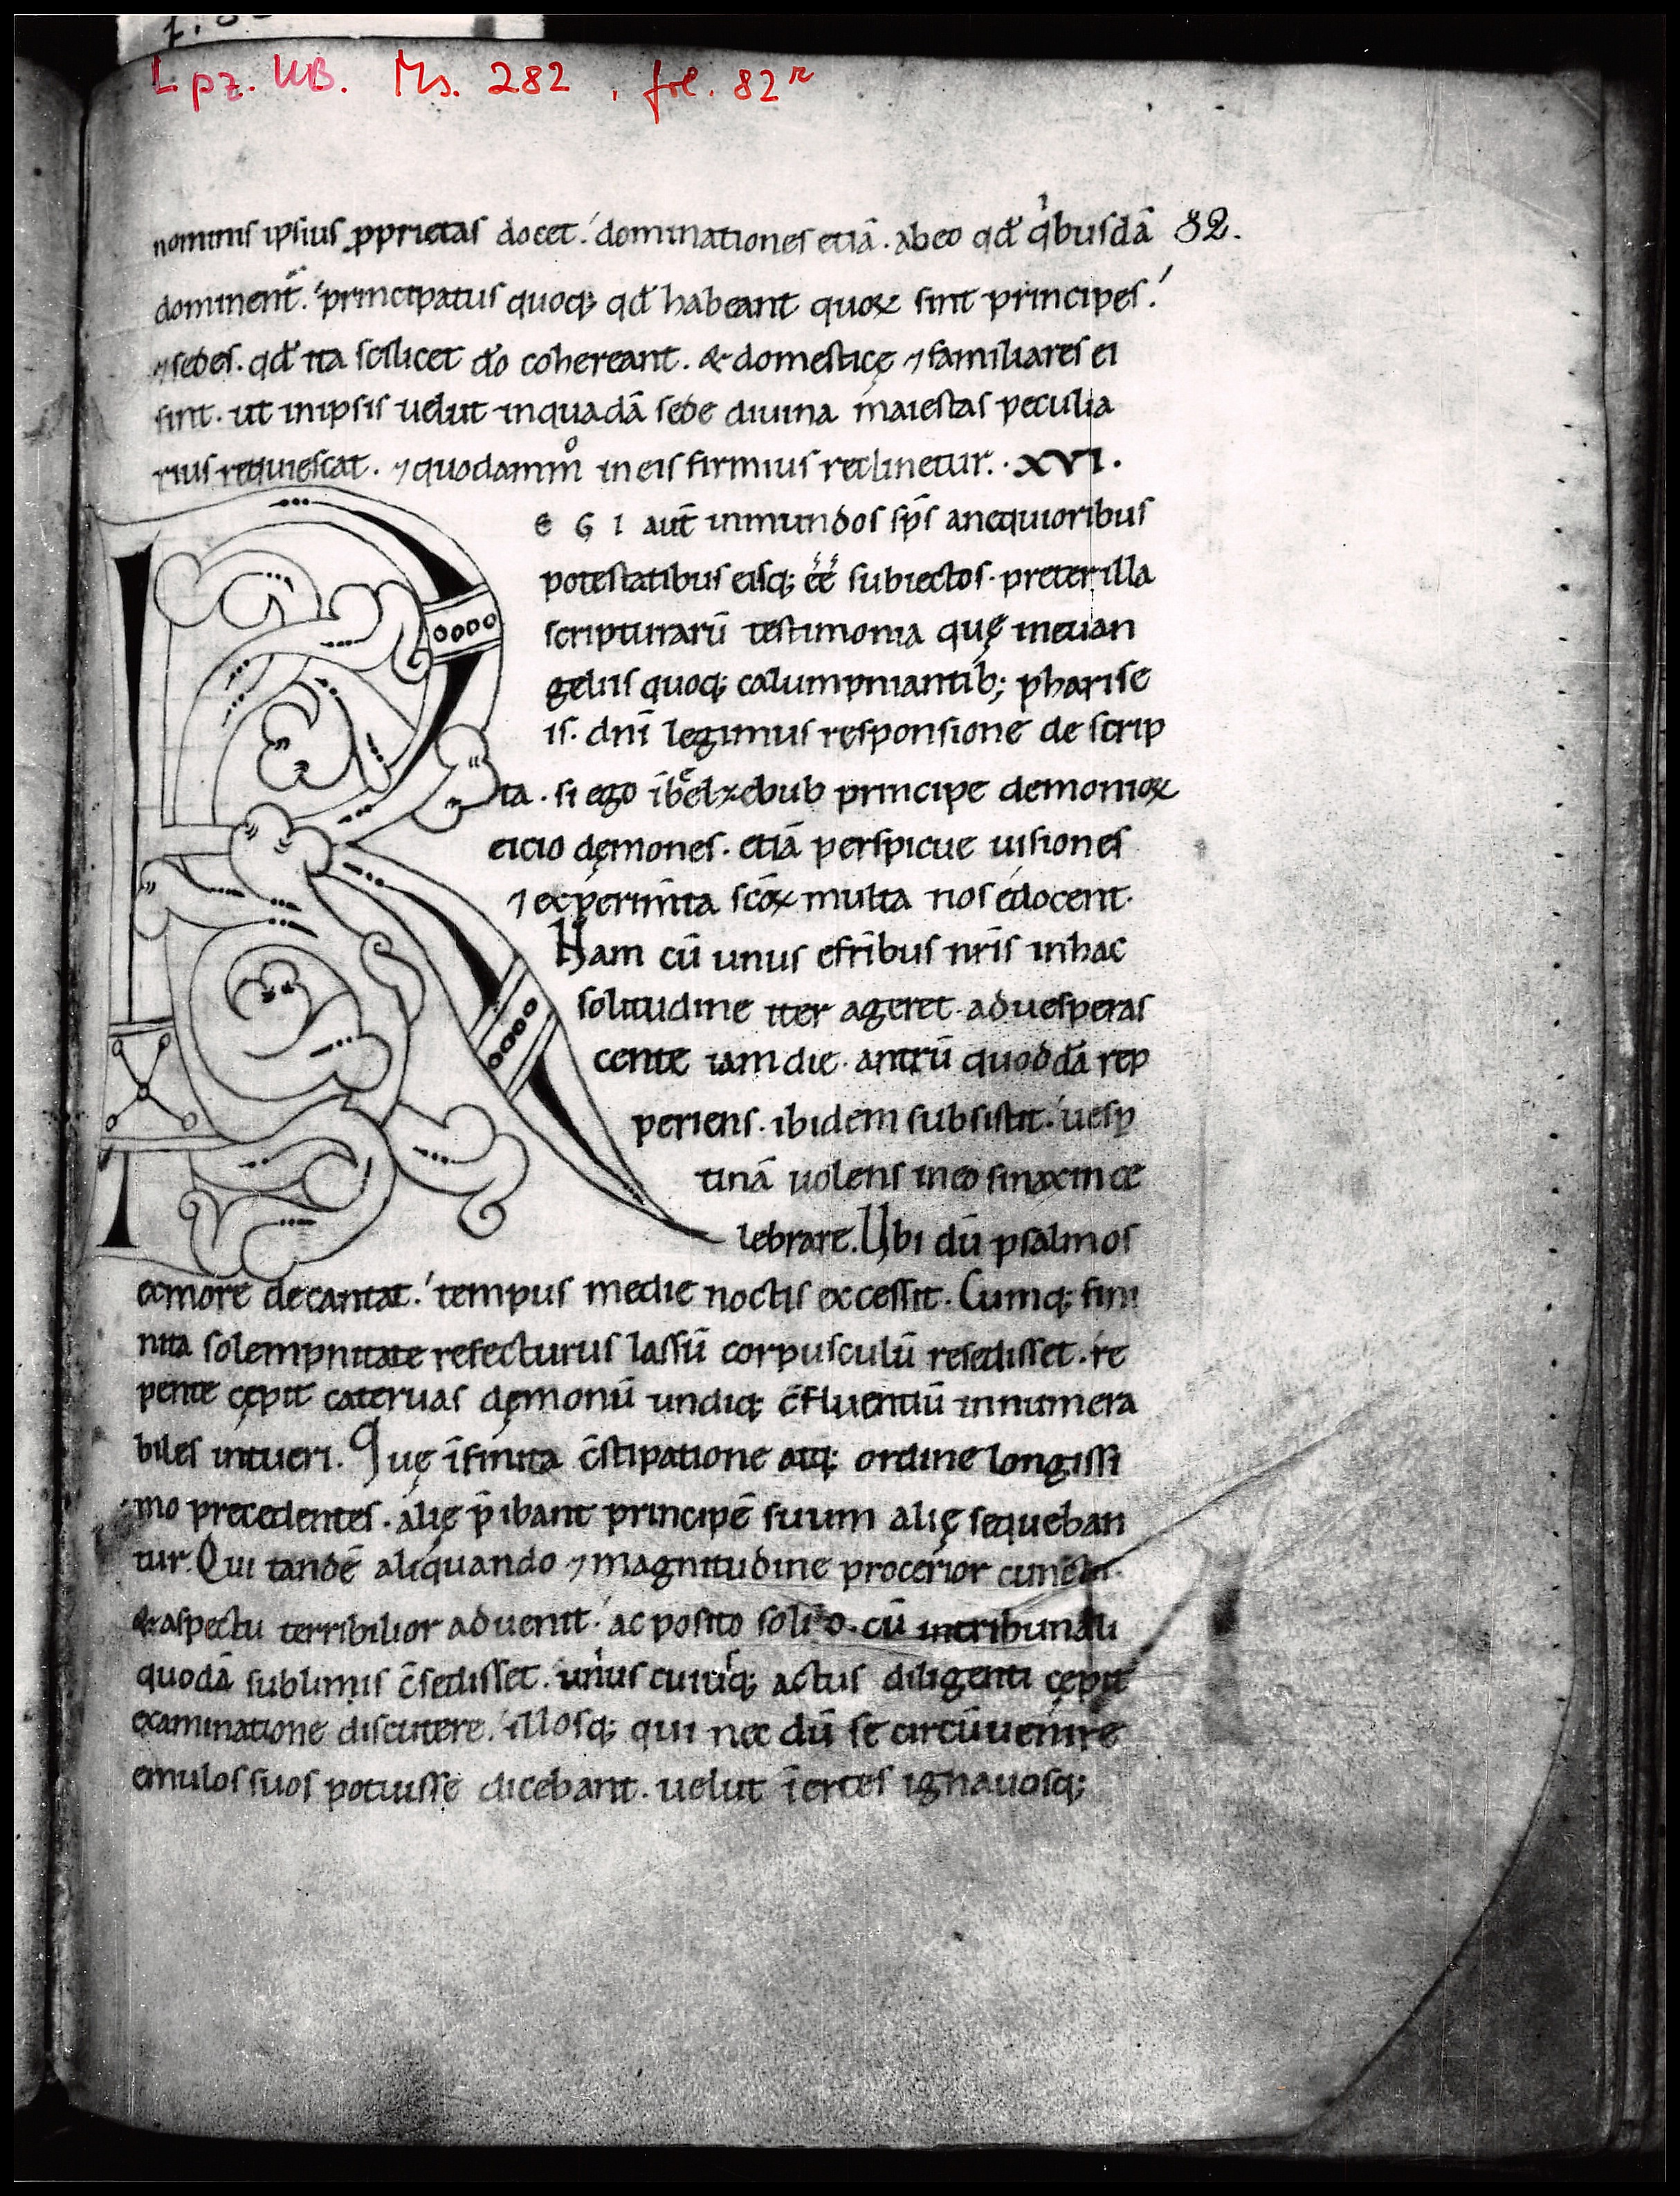 Lpz. UB. Ms. 282, fol. 82r
nominis ipsius ꝓprietas docet. dominationes etiā. abeo qd̛ qͥbusdā 82.
dominent᷑. principatus quoq; qd̛ habeant quoꝝ sint principes.
⁊ sedes. qd̛ ita scilicet dō cohereant. & domesticę ⁊ familiares ei
sint. ut inipsis uelut inquadā sede diuina maiestas peculia
rius requiescat. ⁊ quodamm̊ ineis firmius reclinetur. XVI.
R E G I aut̄ inmundos sp̄s anequioribus
potestatibus eisq; éé subiectos. preter illa
scripturarū testimonia quę ineuan
geliis quoq; calumpniantib; pharise
is. dnī legimus responsione descrip
ta. si ego ībeelzebub principe demonioꝝ
eicio dęmones. etiā perspicue uisiones
⁊ experim̄ta sc̄oꝝ multa nos edocent.
Nam cū unus efrībus nrīs inhac
solitudine iter ageret aduesperas
cente iam die. antrū quoddā rep
periens. ibidem subsistit. uesꝑ
tinā uolens ineo sinaxin ce
lebrare. Ubi dū psalmos
exmore decantat. tempus medie noctis excessit. Cumq; fini
nita solempnitate refecturus lassū corpusculū resedisset. re
pente cępit cateruas dęmonū undiq; c̄fluentiū innumera
biles intueri. Quę īfinita c̄stipatione atq; ordine longissi
mo precedentes. alię p̄ibant principē suum alię sequeban
tur. Qui tandē aliquando ⁊ magnitudine procerior cunctis.
& aspectu terribilior aduenit. ac posito solio. cū intribunali
quodā sublimis c̄sedisset. unius cuiusq; actus diligenti cępit
examinatione discutere. illosq; qui nec dū se circūuenire
emulos suos potuisse dicebant. uelut īertes ignauosq;